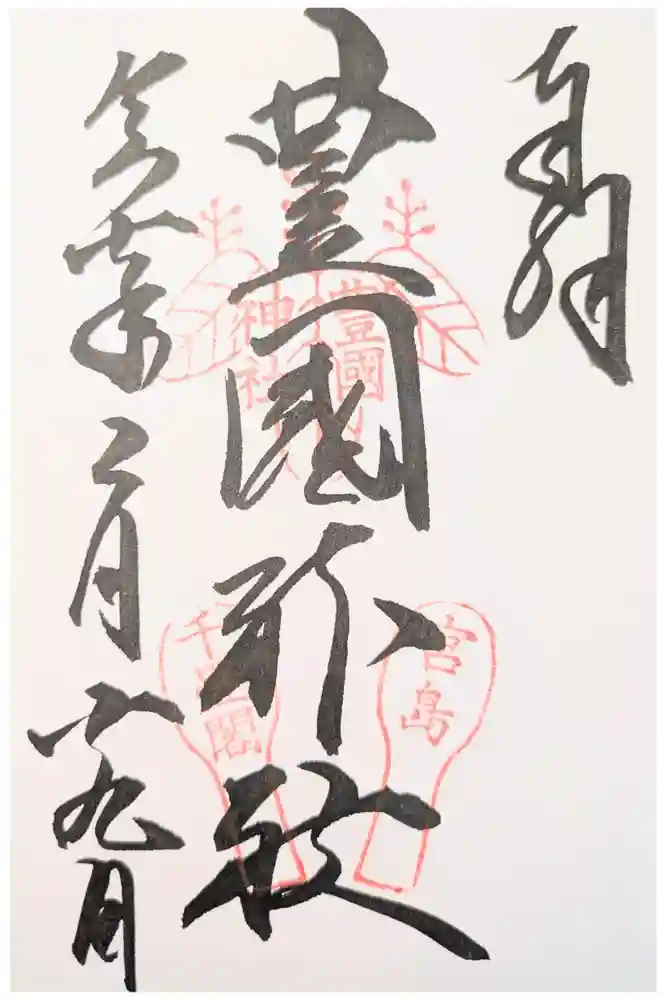 奉拝
豊國神社
令和 年二月十九日
豊國
神社
宮島
千畳閣